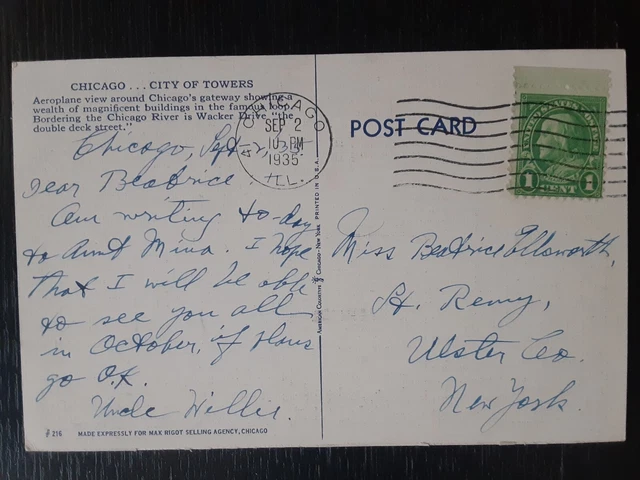 CHICAGO . . . CITY OF TOWERS
Aeroplane view around Chicago's gateway showing a
wealth of magnificent buildings in the famous loop.
Bordering the Chicago River is Wacker Drive "the
double deck street."
Chicago, Sept-2, 35.
Dear Beatrice
Am writing to-day
to Aunt Mina. I hope
that I will be able
to see you all
in October, if plans
go O.K.
Uncle Willis.
216 MADE EXPRESSLY FOR MAX RIGOT SELLING AGENCY, CHICAGO
CHICAGO
SEP 2
10 PM
1935
ILL.
AMERICAN COLORTYPE CHICAGO-NEW YORK PRINTED IN U.S.A.
POST CARD
1 CENT 1
Miss Beatrice Ellsworth,
St. Remy,
Ulster Co.
New York.